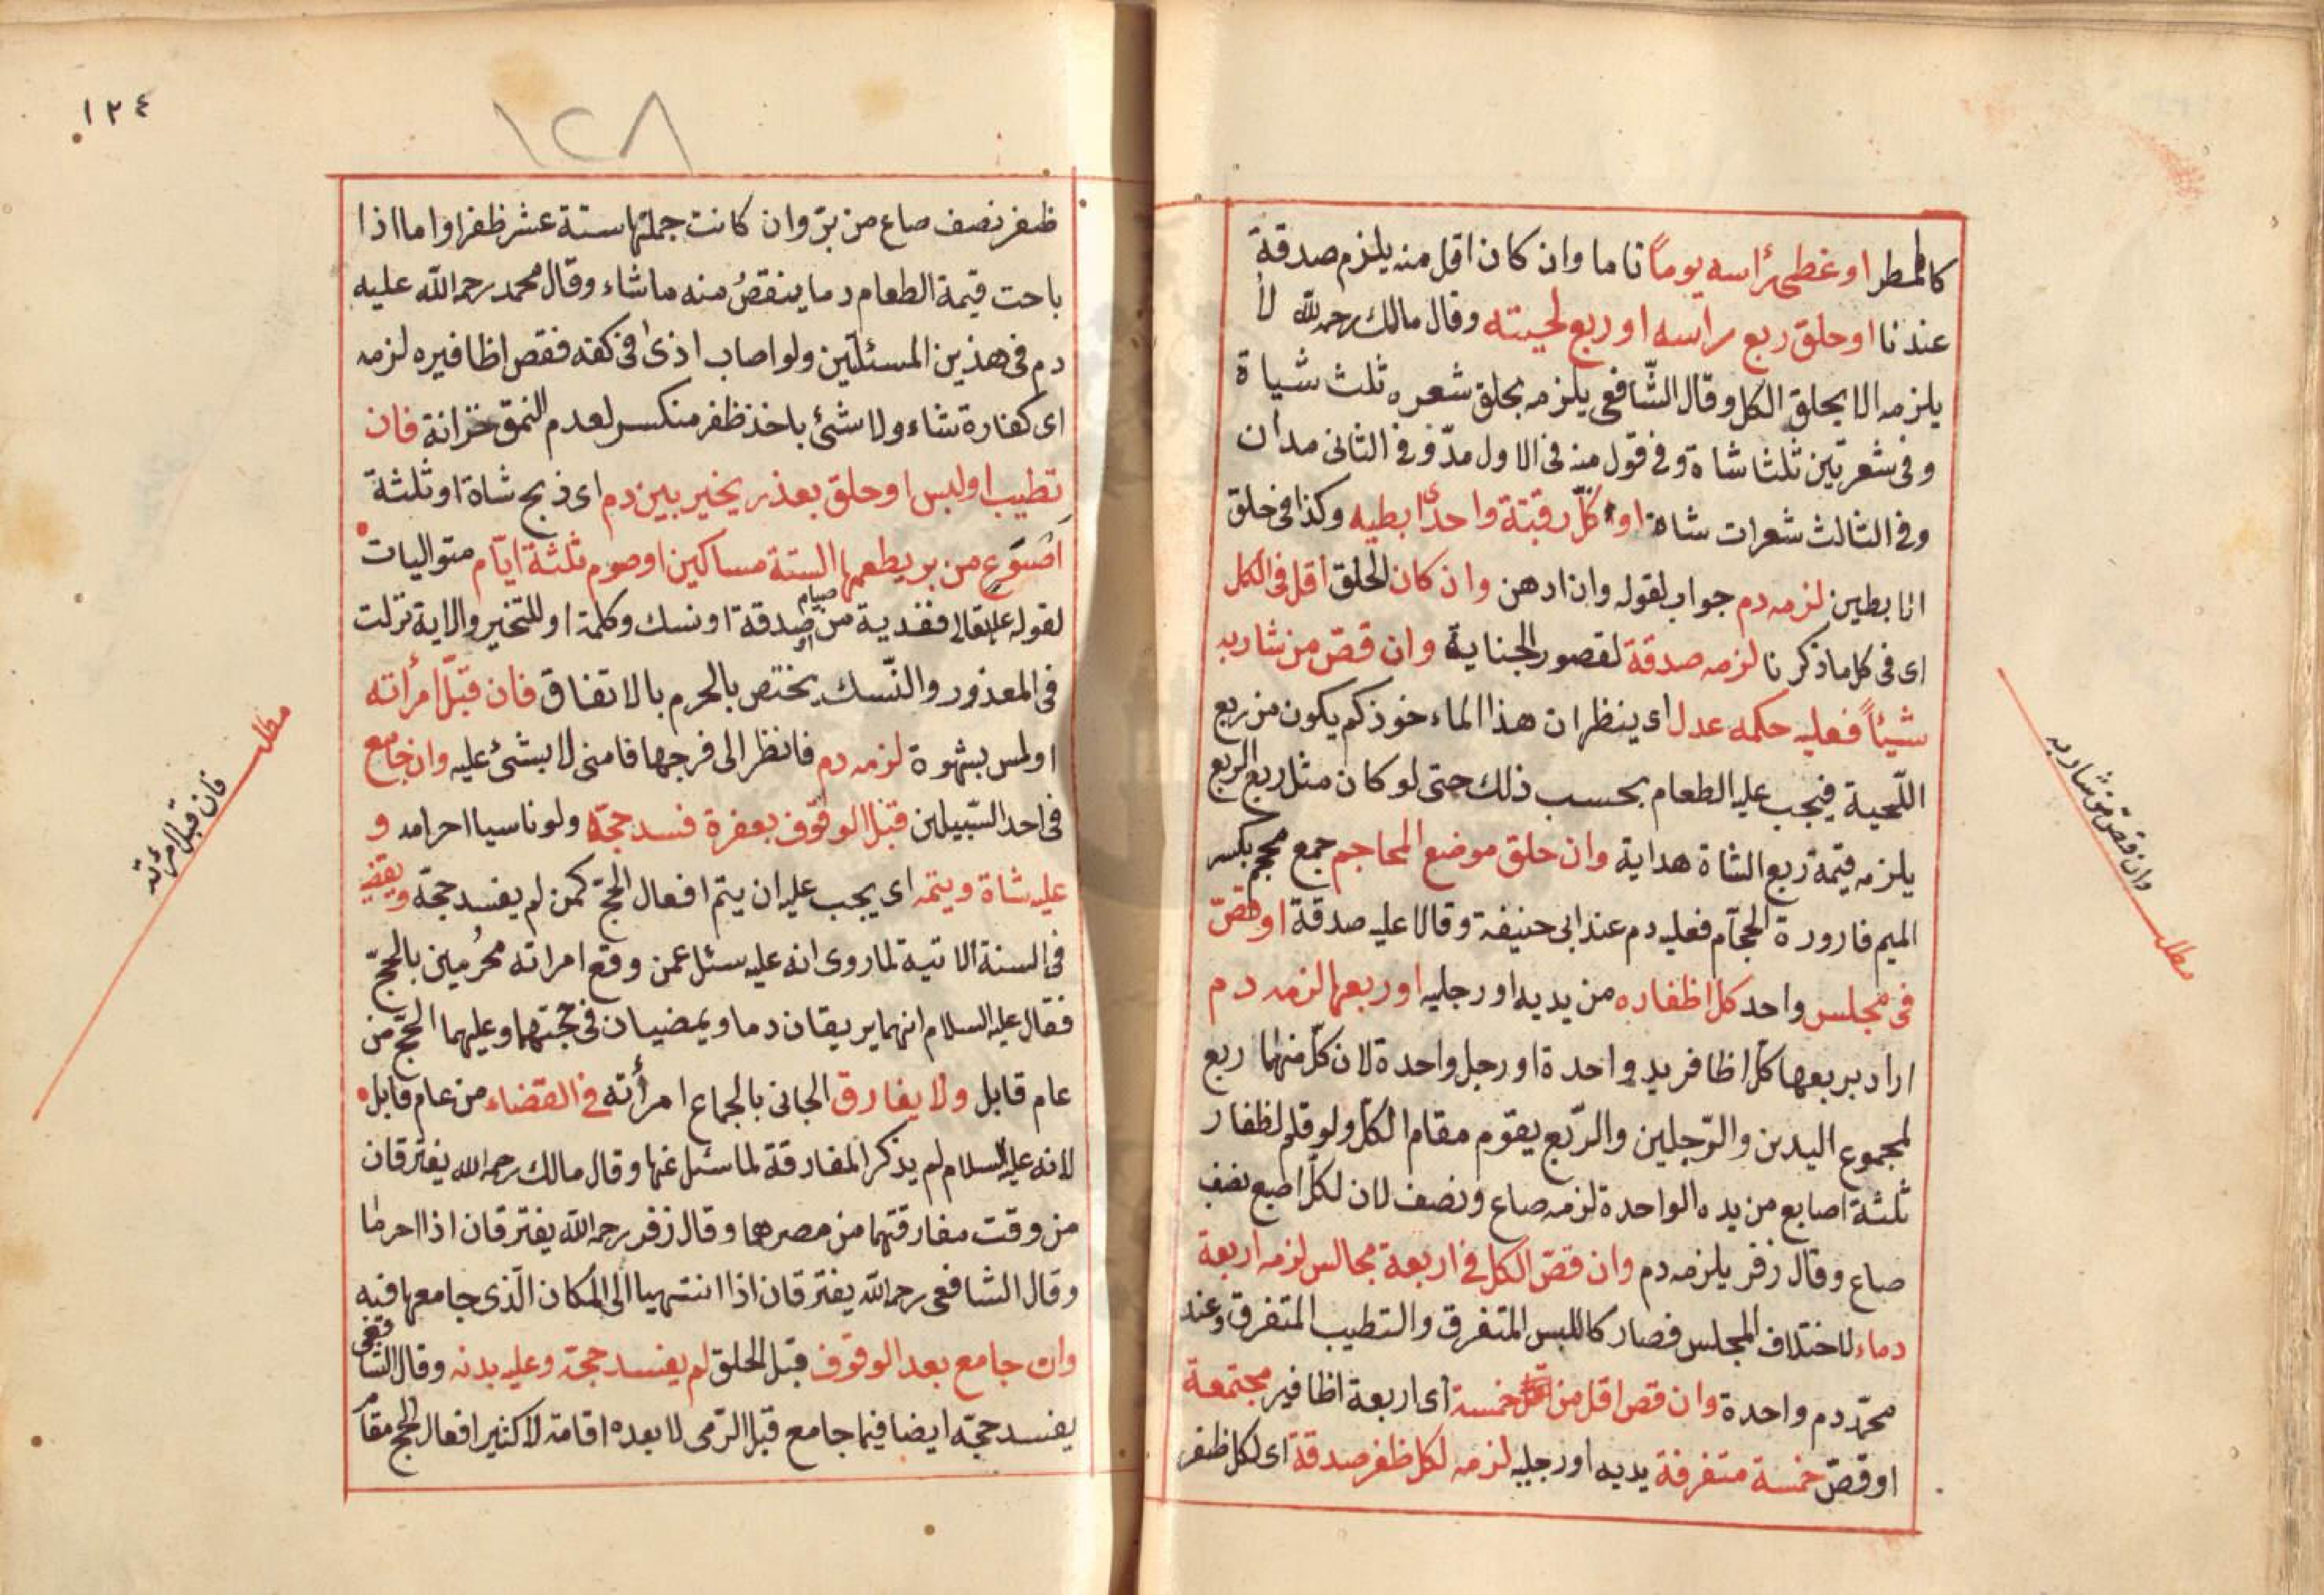 كالمطر او غطى رأسه يوماً تاما وان كان اقل منه يلزم صدقة
عندنا او حلق ربع راسه او ربع لحيته وقال مالك رحمه الله لا
يلزمه الا بحلق الكل وقال الشافعى يلزمه بحلق شعره ثلث شياة
وفى شعرتين ثلثا شاة وفى قول منه فى الاول مدّ وفى الثانى مدان
وفى الثالث شعرات شاة او كلّ رقبتة او احدى ابطيه وكذا فى حلق
الابطين لزمه دم جواب لقوله وان ادهن وان كان الحلق اقل فى الكل
اى فى كل ما ذكرنا لزمه صدقة لقصور الجناية وان قصّ من شاربه
شيئاً فعليه حكمه عدل اى ينظر ان هذا الماءخوذ كم يكون من ربع
اللّحية فيجب عليه الطعام بحسب ذلك حتى لو كان مثل ربع الربع
يلزمه قيمة ربع الشاة هداية وان حلق موضع المحاجم جمع محجم بكسر
الميم قارورة الحجّام فعليه دم عند ابى حنيفة وقالا عليه صدقة او قصّ
فى مجلس واحد كل اظفاره من يديه او رجليه او ربعها لزمه دم
اراد بربعها كلّ اظافر يد واحدة او رجل واحدة لان كلّ منهما ربع
لمجموع اليدين والرّجلين والرّبع يقوّم مقام الكلّ ولو قلم لظفار
ثلثة اصابع من يده الواحدة لزمه صاع ونصف لان لكلّ اصبع نصف
صاع وقال زفر يلزمه دم وان قصّ الكل فى اربعة مجالس لزمه اربعة
دماء لاختلاف المجلس فصار كاللبس المتفرق والتطيب المتفرق وعند
محمّد دم واحدة وان قص اقل من خمسة اى اربعة اظافير مجتمعة
او قصّ خمسة متفرقة يديه او رجليه لزمه لكل ظفر صدقة اى لكل ظفر
وان قصّ من شاربه
مطلب
١٣٤
١٢٨
ظفر نصف صاع من برّ وان كانت جملتها ستة عشر ظفرا واما اذا
باحت قيمة الطعام دما ينقصُ منه ما شاء وقال محمد رحمه الله عليه
دم فى هذين المسئلتين ولو اصاب اذى فى كفه فقص اظافيره لزمه
اى كفارة شاء ولا شئ باخذ ظفر منكسر لعدم النمو خزانة فان
تطيب او لبس او حلق بعذر يخير بين دم اى ذبح شاة او ثلثة
اصوع من بر يطعمها الستة مساكين او صوم ثلثة ايّام متواليات
لقوله تعالى ففدية من صيام او صدقة او نسك وكلمة او للتخير والاية نزلت
فى المعذور والنّسك يختص بالحرم بالاتفاق فان قبّل أمرأته
او لمس بشهوة لزمه دم فانظر الى فرجها فامنى لا بشئ عليه وان جامع
فى احد السّبيلين قبل الوقوف بعفرة فسد حجّه ولو ناسيا احرامه و
عليه شاة ويتمّه اى يجب عليه ان يتمّ افعال الحجّ كمن لم يفسد حجّه ويقضى
فى السنة الاتية لما روى انه عليه سئل عمن وقع امراته محُرمين بالحجّ
فقال عليه السلام انهما يريقان دما ويمضيان فى حجّتهما وعليهما الحجّ من
عام قابل ولا يفارق الجانى بالجماع امرأته فى القضاء من عام قابل
لانه عليه السلام لم يذكر المفارقة لما سئل عنها وقال مالك رحمه الله يفترقان
من وقت مفارقتهما من مصرهما وقال زفر رحمه الله يفترقان اذا احرما
وقال الشافعى رحمه الله يفترقان اذا انتهيا الى المكان الّذى جامعها فيه
وان جامع بعد الوقوف قبل الحلق لم يفسد حجّه وعليه بدنه وقال الشافعى
يفسد حجّه ايضا فيما جامع قبل الرّمى لا بعده اقامة لاكثير افعال الحج مقام
مطلب
فان قبل امرئته